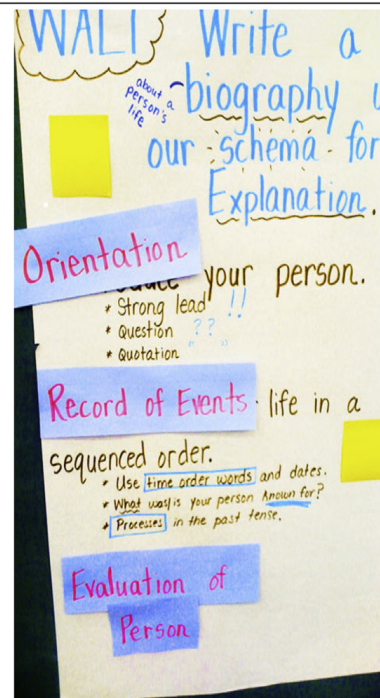 WALT Write a
about a person's life
biography
our schema for
Explanation.
Orientation
your person.
* Strong lead !!
* Question ??
* Quotation " "
Record of Events life in a
sequenced order.
* Use time order words and dates.
* What was/is your person known for?
* Processes in the past tense.
Evaluation of
Person